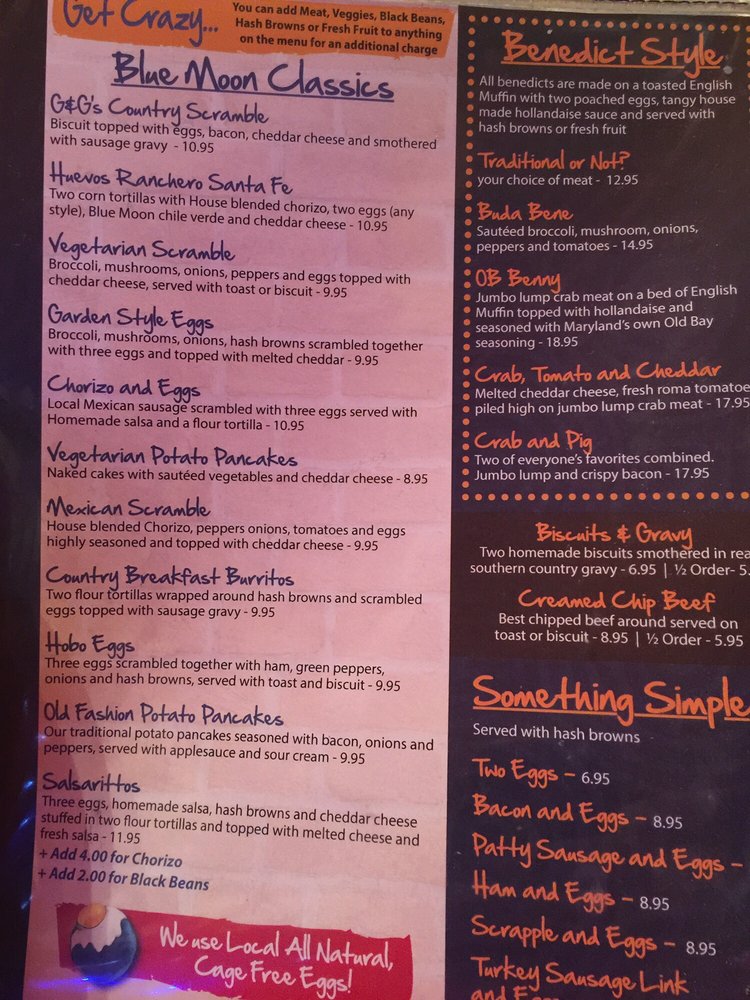 Get Crazy...
You can add Meat, Veggies, Black Beans,
Hash Browns or Fresh Fruit to anything
on the menu for an additional charge
Blue Moon Classics
G&G's Country Scramble
Biscuit topped with eggs, bacon, cheddar cheese and smothered
with sausage gravy - 10.95
Huevos Ranchero Santa Fe
Two corn tortillas with House blended chorizo, two eggs (any
style), Blue Moon chile verde and cheddar cheese - 10.95
Vegetarian Scramble
Broccoli, mushrooms, onions, peppers and eggs topped with
cheddar cheese, served with toast or biscuit - 9.95
Garden Style Eggs
Broccoli, mushrooms, onions, hash browns scrambled together
with three eggs and topped with melted cheddar - 9.95
Chorizo and Eggs
Local Mexican sausage scrambled with three eggs served with
Homemade salsa and a flour tortilla - 10.95
Vegetarian Potato Pancakes
Naked cakes with sautéed vegetables and cheddar cheese - 8.95
Mexican Scramble
House blended Chorizo, peppers onions, tomatoes and eggs
highly seasoned and topped with cheddar cheese - 9.95
Country Breakfast Burritos
Two flour tortillas wrapped around hash browns and scrambled
eggs topped with sausage gravy - 9.95
Hobo Eggs
Three eggs scrambled together with ham, green peppers,
onions and hash browns, served with toast and biscuit - 9.95
Old Fashion Potato Pancakes
Our traditional potato pancakes seasoned with bacon, onions and
peppers, served with applesauce and sour cream - 9.95
Salsarittos
Three eggs, homemade salsa, hash browns and cheddar cheese
stuffed in two flour tortillas and topped with melted cheese and
fresh salsa - 11.95
+ Add 4.00 for Chorizo
+ Add 2.00 for Black Beans
We use Local All Natural,
Cage Free Eggs!
Benedict Style
All benedicts are made on a toasted English
Muffin with two poached eggs, tangy house
made hollandaise sauce and served with
hash browns or fresh fruit
Traditional or Not?
your choice of meat - 12.95
Buda Bene
Sautéed broccoli, mushroom, onions,
peppers and tomatoes - 14.95
OB Benny
Jumbo lump crab meat on a bed of English
Muffin topped with hollandaise and
seasoned with Maryland's own Old Bay
seasoning - 18.95
Crab, Tomato and Cheddar
Melted cheddar cheese, fresh roma tomatoe
piled high on jumbo lump crab meat - 17.95
Crab and Pig
Two of everyone's favorites combined.
Jumbo lump and crispy bacon - 17.95
Biscuits & Gravy
Two homemade biscuits smothered in rea
southern country gravy - 6.95 | ½ Order- 5.
Creamed Chip Beef
Best chipped beef around served on
toast or biscuit - 8.95 | ½ Order - 5.95
Something Simple
Served with hash browns
Two Eggs - 6.95
Bacon and Eggs - 8.95
Patty Sausage and Eggs -
Ham and Eggs - 8.95
Scrapple and Eggs - 8.95
Turkey Sausage Link
and